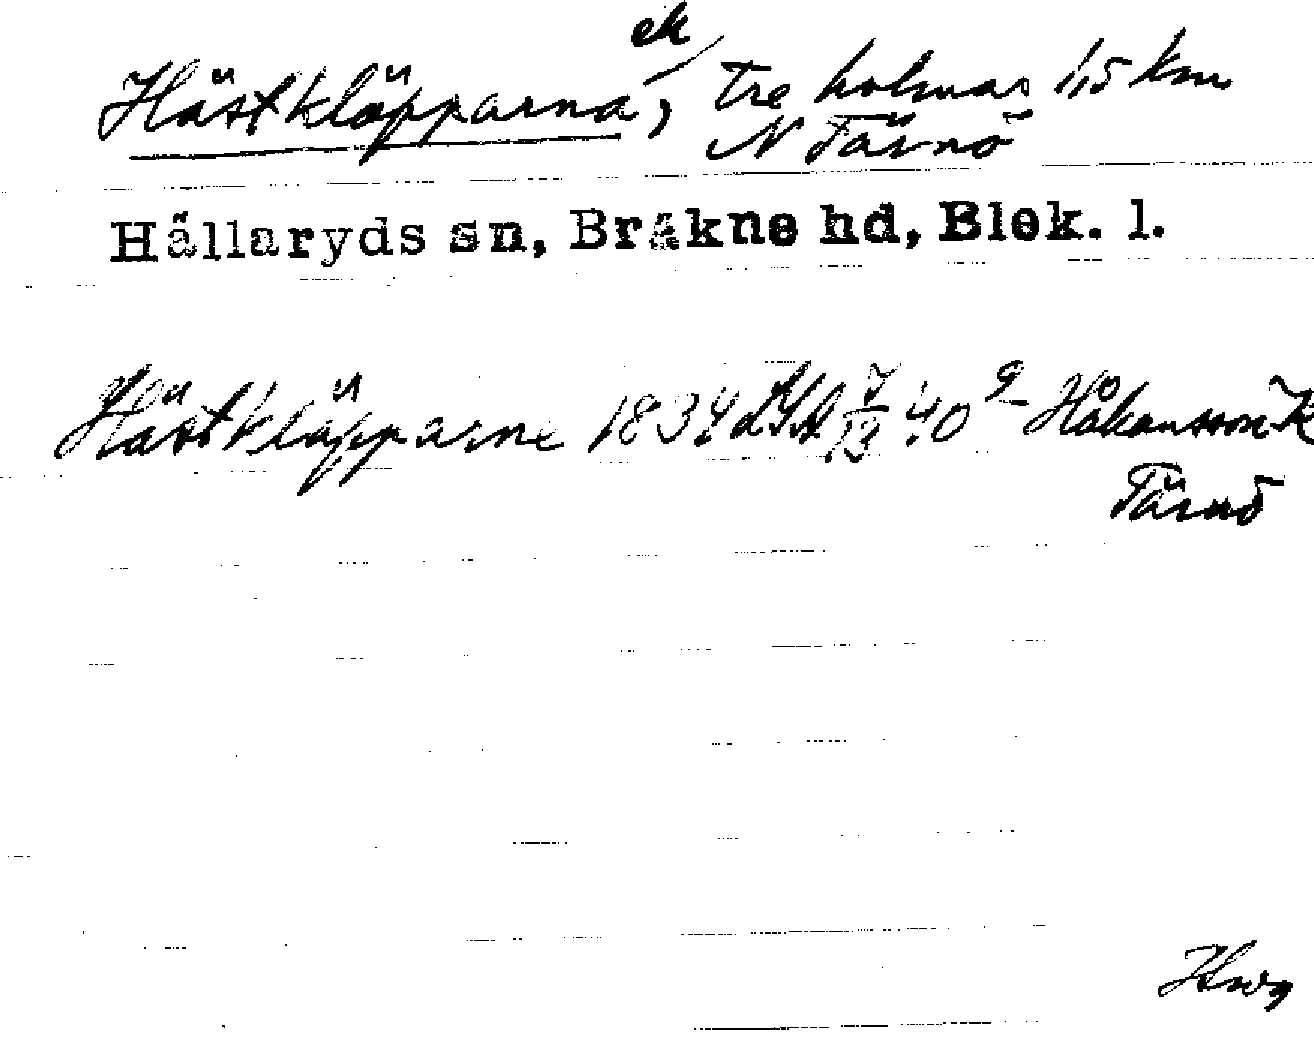 ek
Hästkläpparna, tre holmar 1,5 km
N Tärnö
Hällaryds sn, Bräkne hd, Blek. l.
Hästkläpparne 1834 LSA 7/13 40 Håkansson K
Tärnö